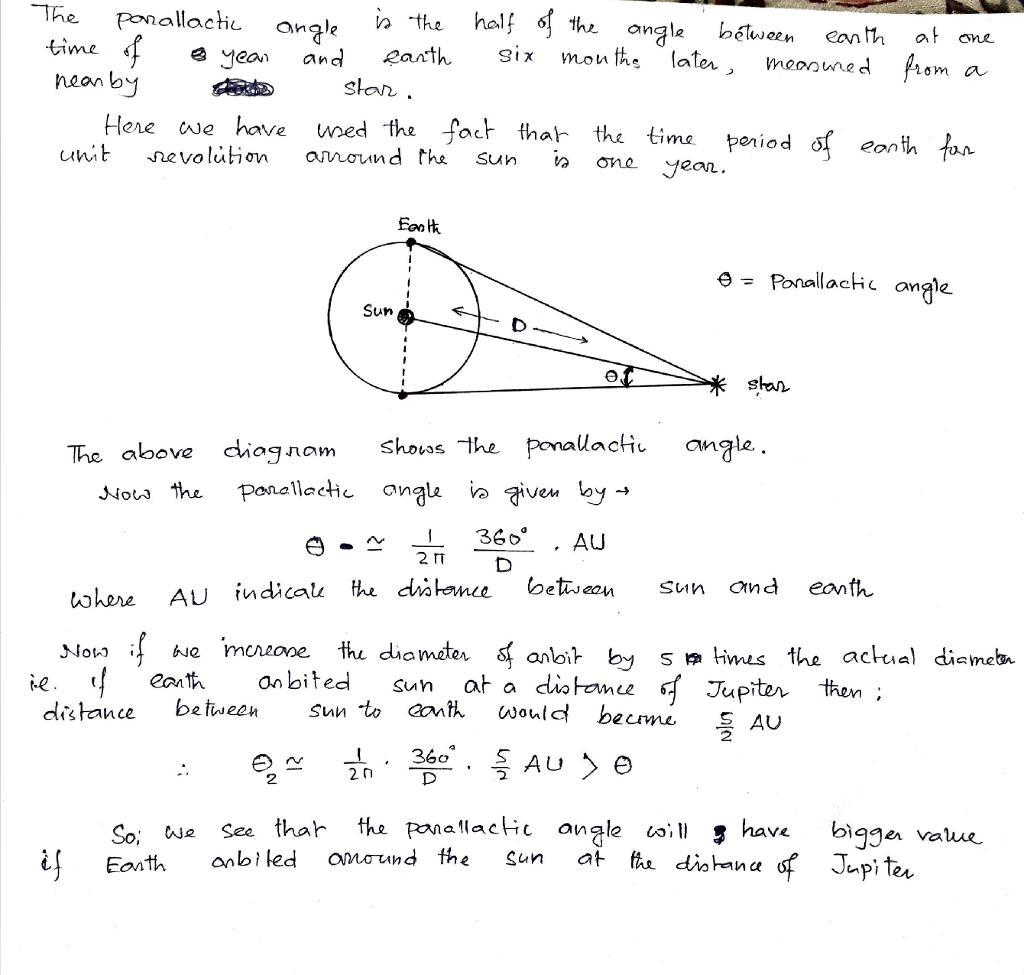 The parallactic angle is the half of the angle between earth at one
time of year and earth six months later, measured from a
nearby star.
Here we have used the fact that the time period of earth for
unit revolution arround the sun is one year.
Earth
Sun
D
θ
θ = Parallactic angle
star
The above diagram shows the parallactic angle.
Now the parallactic angle is given by →
θ ≃ 1/2π 360°/D . AU
where AU indicate the distance between sun and earth
Now if we increase the diameter of orbit by 5 times the actual diameter
i.e. if earth orbited sun at a distance of Jupiter then ;
distance between sun to earth would become 5/2 AU
∴ θ₂ ≃ 1/2π . 360°/D . 5/2 AU > θ
So, we see that the parallactic angle will have bigger value
if Earth orbited arround the sun at the distance of Jupiter